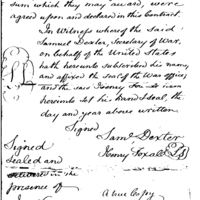 sum which they may award, were
agreed upon and declared in this Contract.
In Witness whereof the said
Samuel Dexter, Secretary of War,
on behalf of the United States
hath hereunto subscribed his name,
and affixed the Seal of the War office,
and the said Henry Foxall has
hereunto set his hand & seal, the
day and year above written
Signed
Saml Dexter
Henry Foxall LS
Signed
Sealed and
in the
presence of
A true Copy